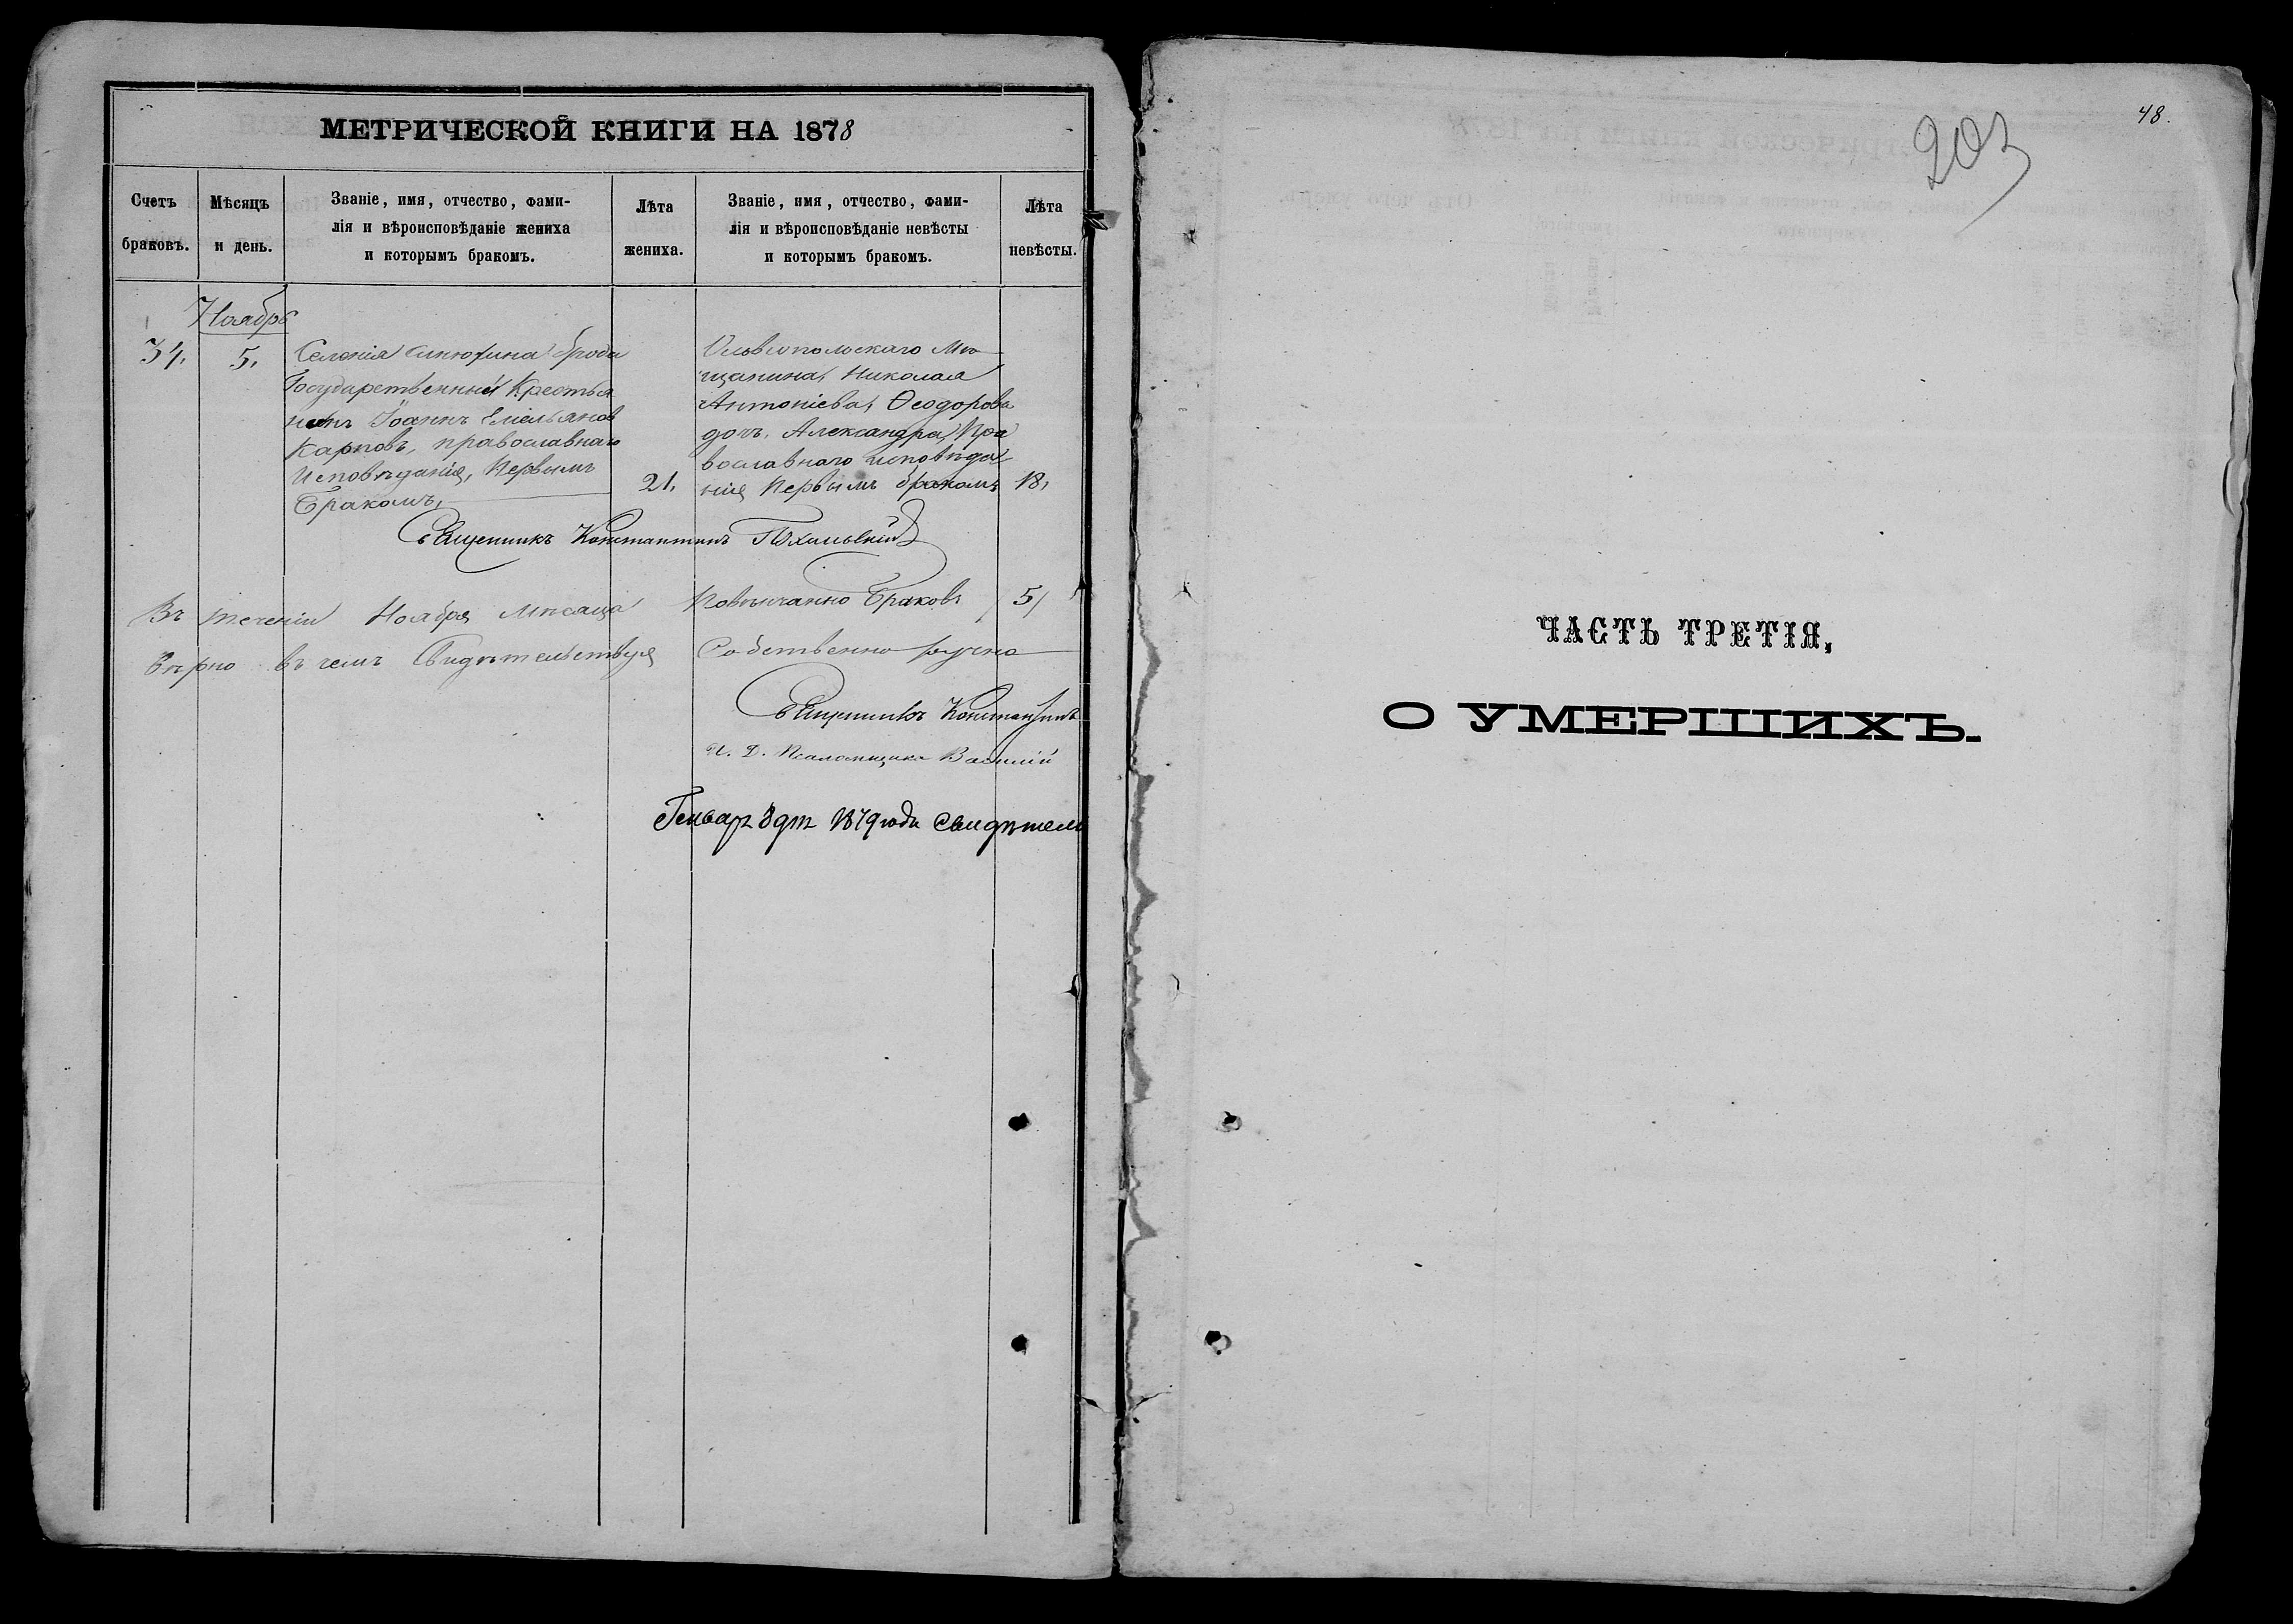 МЕТРИЧЕСКОЙ КНИГИ НА 1878
Счетъ браковъ.
Мѣсяцъ и день.
Званіе, имя, отчество, фами-
лія и вѣроисповѣданіе жениха
и которымъ бракомъ.
Лѣта жениха.
Званіе, имя, отчество, фами-
лія и вѣроисповѣданіе невѣсты
и которымъ бракомъ.
Лѣта невѣсты.
Ноябрь
34. 5.
Селенія Синюхина брода
Государственный Крестья
нинъ Іоаннъ Емельянов
Карповъ, православнаго
Исповѣданія, Первымъ
Бракомъ,
21.
Ольвіопольскаго Мѣ
щанина, Николая
Антоніева, Ѳеодорова
дочь, Александра, Пра
вославнаго исповѣда
нія Первымъ бракомъ
18,
Священникъ Константинъ
Въ теченіи Ноября Мѣсяца Повѣнчанно Браковъ 5
Вѣрно въ чемъ Свидѣтельствуя Собственно ручно
Священникъ Константинъ
И. Д. Псаломщика Василій
Генваря 3 дня 1879 года Свидѣтель
203
48.
ЧАСТЬ ТРЕТІЯ,
О УМЕРШИХЪ.